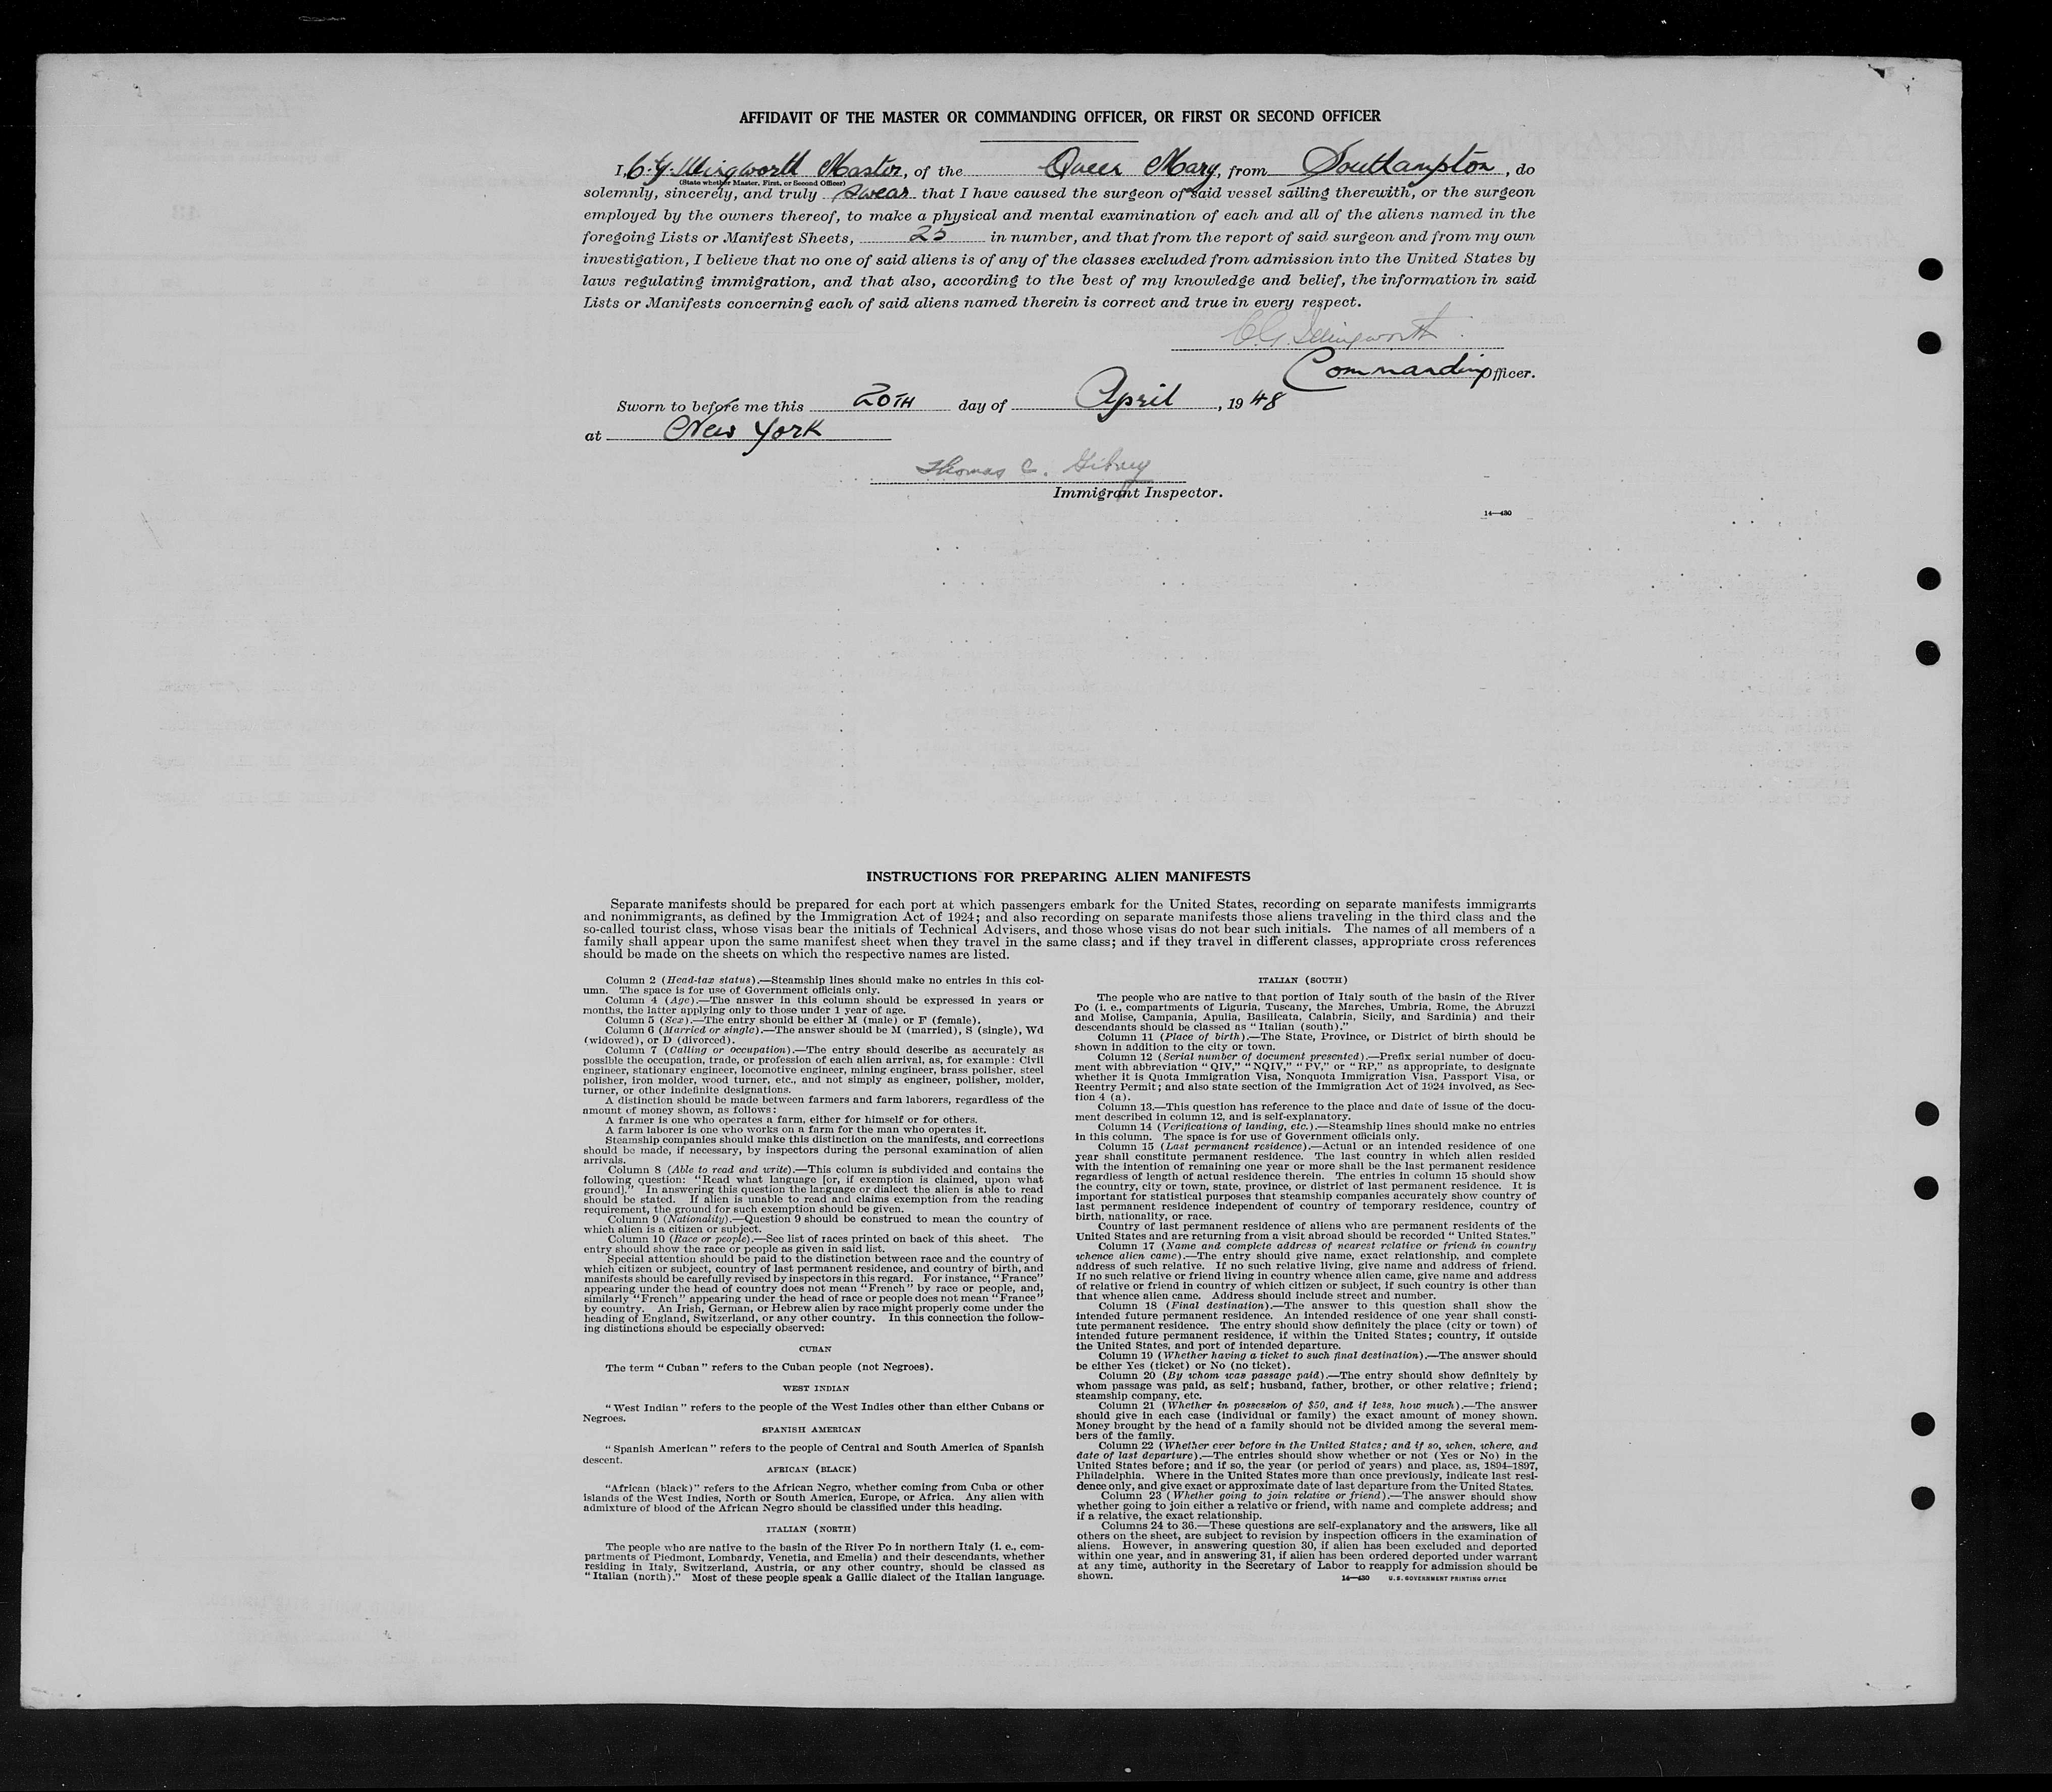 AFFIDAVIT OF THE MASTER OR COMMANDING OFFICER, OR FIRST OR SECOND OFFICER
I, C.G. Illingworth Master, of the Queen Mary, from Southampton, do
(State whether Master, First, or Second Officer)
solemnly, sincerely, and truly swear that I have caused the surgeon of said vessel sailing therewith, or the surgeon
employed by the owners thereof, to make a physical and mental examination of each and all of the aliens named in the
foregoing Lists or Manifest Sheets, 25 in number, and that from the report of said surgeon and from my own
investigation, I believe that no one of said aliens is of any of the classes excluded from admission into the United States by
laws regulating immigration, and that also, according to the best of my knowledge and belief, the information in said
Lists or Manifests concerning each of said aliens named therein is correct and true in every respect.
C.G. Illingworth
Commanding Officer.
Sworn to before me this 20TH day of April, 1948
at New York
Thomas C. Gibney
Immigrant Inspector.
14—430
INSTRUCTIONS FOR PREPARING ALIEN MANIFESTS
Separate manifests should be prepared for each port at which passengers embark for the United States, recording on separate manifests immigrants
and nonimmigrants, as defined by the Immigration Act of 1924; and also recording on separate manifests those aliens traveling in the third class and the
so-called tourist class, whose visas bear the initials of Technical Advisers, and those whose visas do not bear such initials. The names of all members of a
family shall appear upon the same manifest sheet when they travel in the same class; and if they travel in different classes, appropriate cross references
should be made on the sheets on which the respective names are listed.
Column 2 (Head-tax status).—Steamship lines should make no entries in this col-
umn. The space is for use of Government officials only.
Column 4 (Age).—The answer in this column should be expressed in years or
months, the latter applying only to those under 1 year of age.
Column 5 (Sex).—The entry should be either M (male) or F (female).
Column 6 (Married or single).—The answer should be M (married), S (single), Wd
(widowed), or D (divorced).
Column 7 (Calling or occupation).—The entry should describe as accurately as
possible the occupation, trade, or profession of each alien arrival, as, for example: Civil
engineer, stationary engineer, locomotive engineer, mining engineer, brass polisher, steel
polisher, iron molder, wood turner, etc., and not simply as engineer, polisher, molder,
turner, or other indefinite designations.
A distinction should be made between farmers and farm laborers, regardless of the
amount of money shown, as follows:
A farmer is one who operates a farm, either for himself or for others.
A farm laborer is one who works on a farm for the man who operates it.
Steamship companies should make this distinction on the manifests, and corrections
should be made, if necessary, by inspectors during the personal examination of alien
arrivals.
Column 8 (Able to read and write).—This column is subdivided and contains the
following question: "Read what language [or, if exemption is claimed, upon what
ground]." In answering this question the language or dialect the alien is able to read
should be stated. If alien is unable to read and claims exemption from the reading
requirement, the ground for such exemption should be given.
Column 9 (Nationality).—Question 9 should be construed to mean the country of
which alien is a citizen or subject.
Column 10 (Race or people).—See list of races printed on back of this sheet. The
entry should show the race or people as given in said list.
Special attention should be paid to the distinction between race and the country of
which citizen or subject, country of last permanent residence, and country of birth, and
manifests should be carefully revised by inspectors in this regard. For instance, "France"
appearing under the head of country does not mean "French" by race or people, and,
similarly "French" appearing under the head of race or people does not mean "France"
by country. An Irish, German, or Hebrew alien by race might properly come under the
heading of England, Switzerland, or any other country. In this connection the follow-
ing distinctions should be especially observed:
CUBAN
The term "Cuban" refers to the Cuban people (not Negroes).
WEST INDIAN
"West Indian" refers to the people of the West Indies other than either Cubans or
Negroes.
SPANISH AMERICAN
"Spanish American" refers to the people of Central and South America of Spanish
descent.
AFRICAN (BLACK)
"African (black)" refers to the African Negro, whether coming from Cuba or other
islands of the West Indies, North or South America, Europe, or Africa. Any alien with
admixture of blood of the African Negro should be classified under this heading.
ITALIAN (NORTH)
The people who are native to the basin of the River Po in northern Italy (i. e., com-
partments of Piedmont, Lombardy, Venetia, and Emelia) and their descendants, whether
residing in Italy, Switzerland, Austria, or any other country, should be classed as
"Italian (north)." Most of these people speak a Gallic dialect of the Italian language.
ITALIAN (SOUTH)
The people who are native to that portion of Italy south of the basin of the River
Po (i. e., compartments of Liguria, Tuscany, the Marches, Umbria, Rome, the Abruzzi
and Molise, Campania, Apulia, Basilicata, Calabria, Sicily, and Sardinia) and their
descendants should be classed as "Italian (south)."
Column 11 (Place of birth).—The State, Province, or District of birth should be
shown in addition to the city or town.
Column 12 (Serial number of document presented).—Prefix serial number of docu-
ment with abbreviation "QIV," "NQIV," "PV," or "RP," as appropriate, to designate
whether it is Quota Immigration Visa, Nonquota Immigration Visa, Passport Visa, or
Reentry Permit; and also state section of the Immigration Act of 1924 involved, as Sec-
tion 4 (a).
Column 13.—This question has reference to the place and date of issue of the docu-
ment described in column 12, and is self-explanatory.
Column 14 (Verifications of landing, etc.).—Steamship lines should make no entries
in this column. The space is for use of Government officials only.
Column 15 (Last permanent residence).—Actual or an intended residence of one
year shall constitute permanent residence. The last country in which alien resided
with the intention of remaining one year or more shall be the last permanent residence
regardless of length of actual residence therein. The entries in column 15 should show
the country, city or town, state, province, or district of last permanent residence. It is
important for statistical purposes that steamship companies accurately show country of
last permanent residence independent of country of temporary residence, country of
birth, nationality, or race.
Country of last permanent residence of aliens who are permanent residents of the
United States and are returning from a visit abroad should be recorded "United States."
Column 17 (Name and complete address of nearest relative or friend in country
whence alien came).—The entry should give name, exact relationship, and complete
address of such relative. If no such relative living, give name and address of friend.
If no such relative or friend living in country whence alien came, give name and address
of relative or friend in country of which citizen or subject, if such country is other than
that whence alien came. Address should include street and number.
Column 18 (Final destination).—The answer to this question shall show the
intended future permanent residence. An intended residence of one year shall consti-
tute permanent residence. The entry should show definitely the place (city or town) of
intended future permanent residence, if within the United States; country, if outside
the United States, and port of intended departure.
Column 19 (Whether having a ticket to such final destination).—The answer should
be either Yes (ticket) or No (no ticket).
Column 20 (By whom was passage paid).—The entry should show definitely by
whom passage was paid, as self; husband, father, brother, or other relative; friend;
steamship company, etc.
Column 21 (Whether in possession of $50, and if less, how much).—The answer
should give in each case (individual or family) the exact amount of money shown.
Money brought by the head of a family should not be divided among the several mem-
bers of the family.
Column 22 (Whether ever before in the United States; and if so, when, where, and
date of last departure).—The entries should show whether or not (Yes or No) in the
United States before; and if so, the year (or period of years) and place, as, 1894–1897,
Philadelphia. Where in the United States more than once previously, indicate last resi-
dence only, and give exact or approximate date of last departure from the United States.
Column 23 (Whether going to join relative or friend).—The answer should show
whether going to join either a relative or friend, with name and complete address; and
if a relative, the exact relationship.
Columns 24 to 36.—These questions are self-explanatory and the answers, like all
others on the sheet, are subject to revision by inspection officers in the examination of
aliens. However, in answering question 30, if alien has been excluded and deported
within one year, and in answering 31, if alien has been ordered deported under warrant
at any time, authority in the Secretary of Labor to reapply for admission should be
shown.
14—430 U.S. GOVERNMENT PRINTING OFFICE